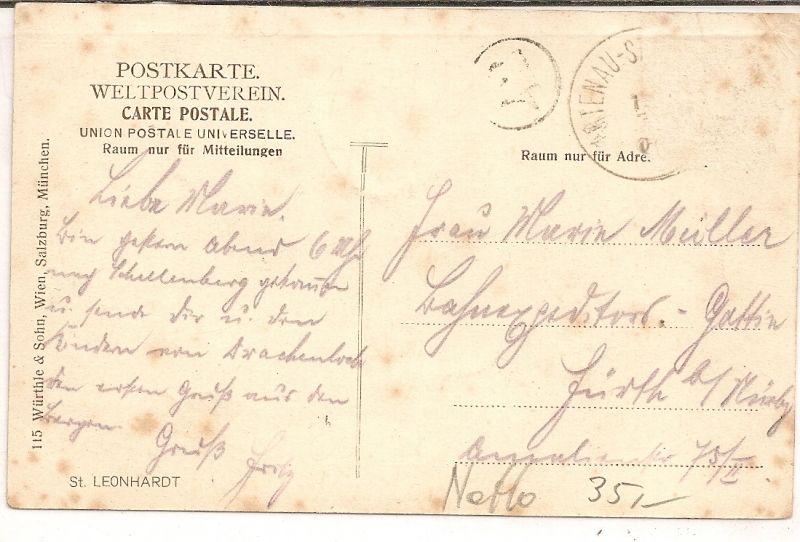 POSTKARTE.
WELTPOSTVEREIN.
CARTE POSTALE.
UNION POSTALE UNIVERSELLE.
Raum nur für Mitteilungen
Liebe Marie.
Bin gestern Abend 6 Uhr
nach Schellenberg gekommen
u. sende Dir u. den
Kindern vom Drachenloch
den ersten Gruß aus den
Bergen.
Gruß Fritz
St. LEONHARDT
115 Würthle & Sohn, Wien, Salzburg, München.
ARTENAU-S
Raum nur für Adre.
Frau Marie Müller
Bahnexpeditors-Gattin
Fürth b/Nürbg
Amalienstr 75/II
Netto 35,-